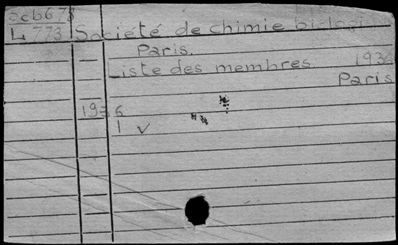 Scb678
L 773 Société de chimie biologi
Paris.
Liste des membres 193
Paris
1936
1 v